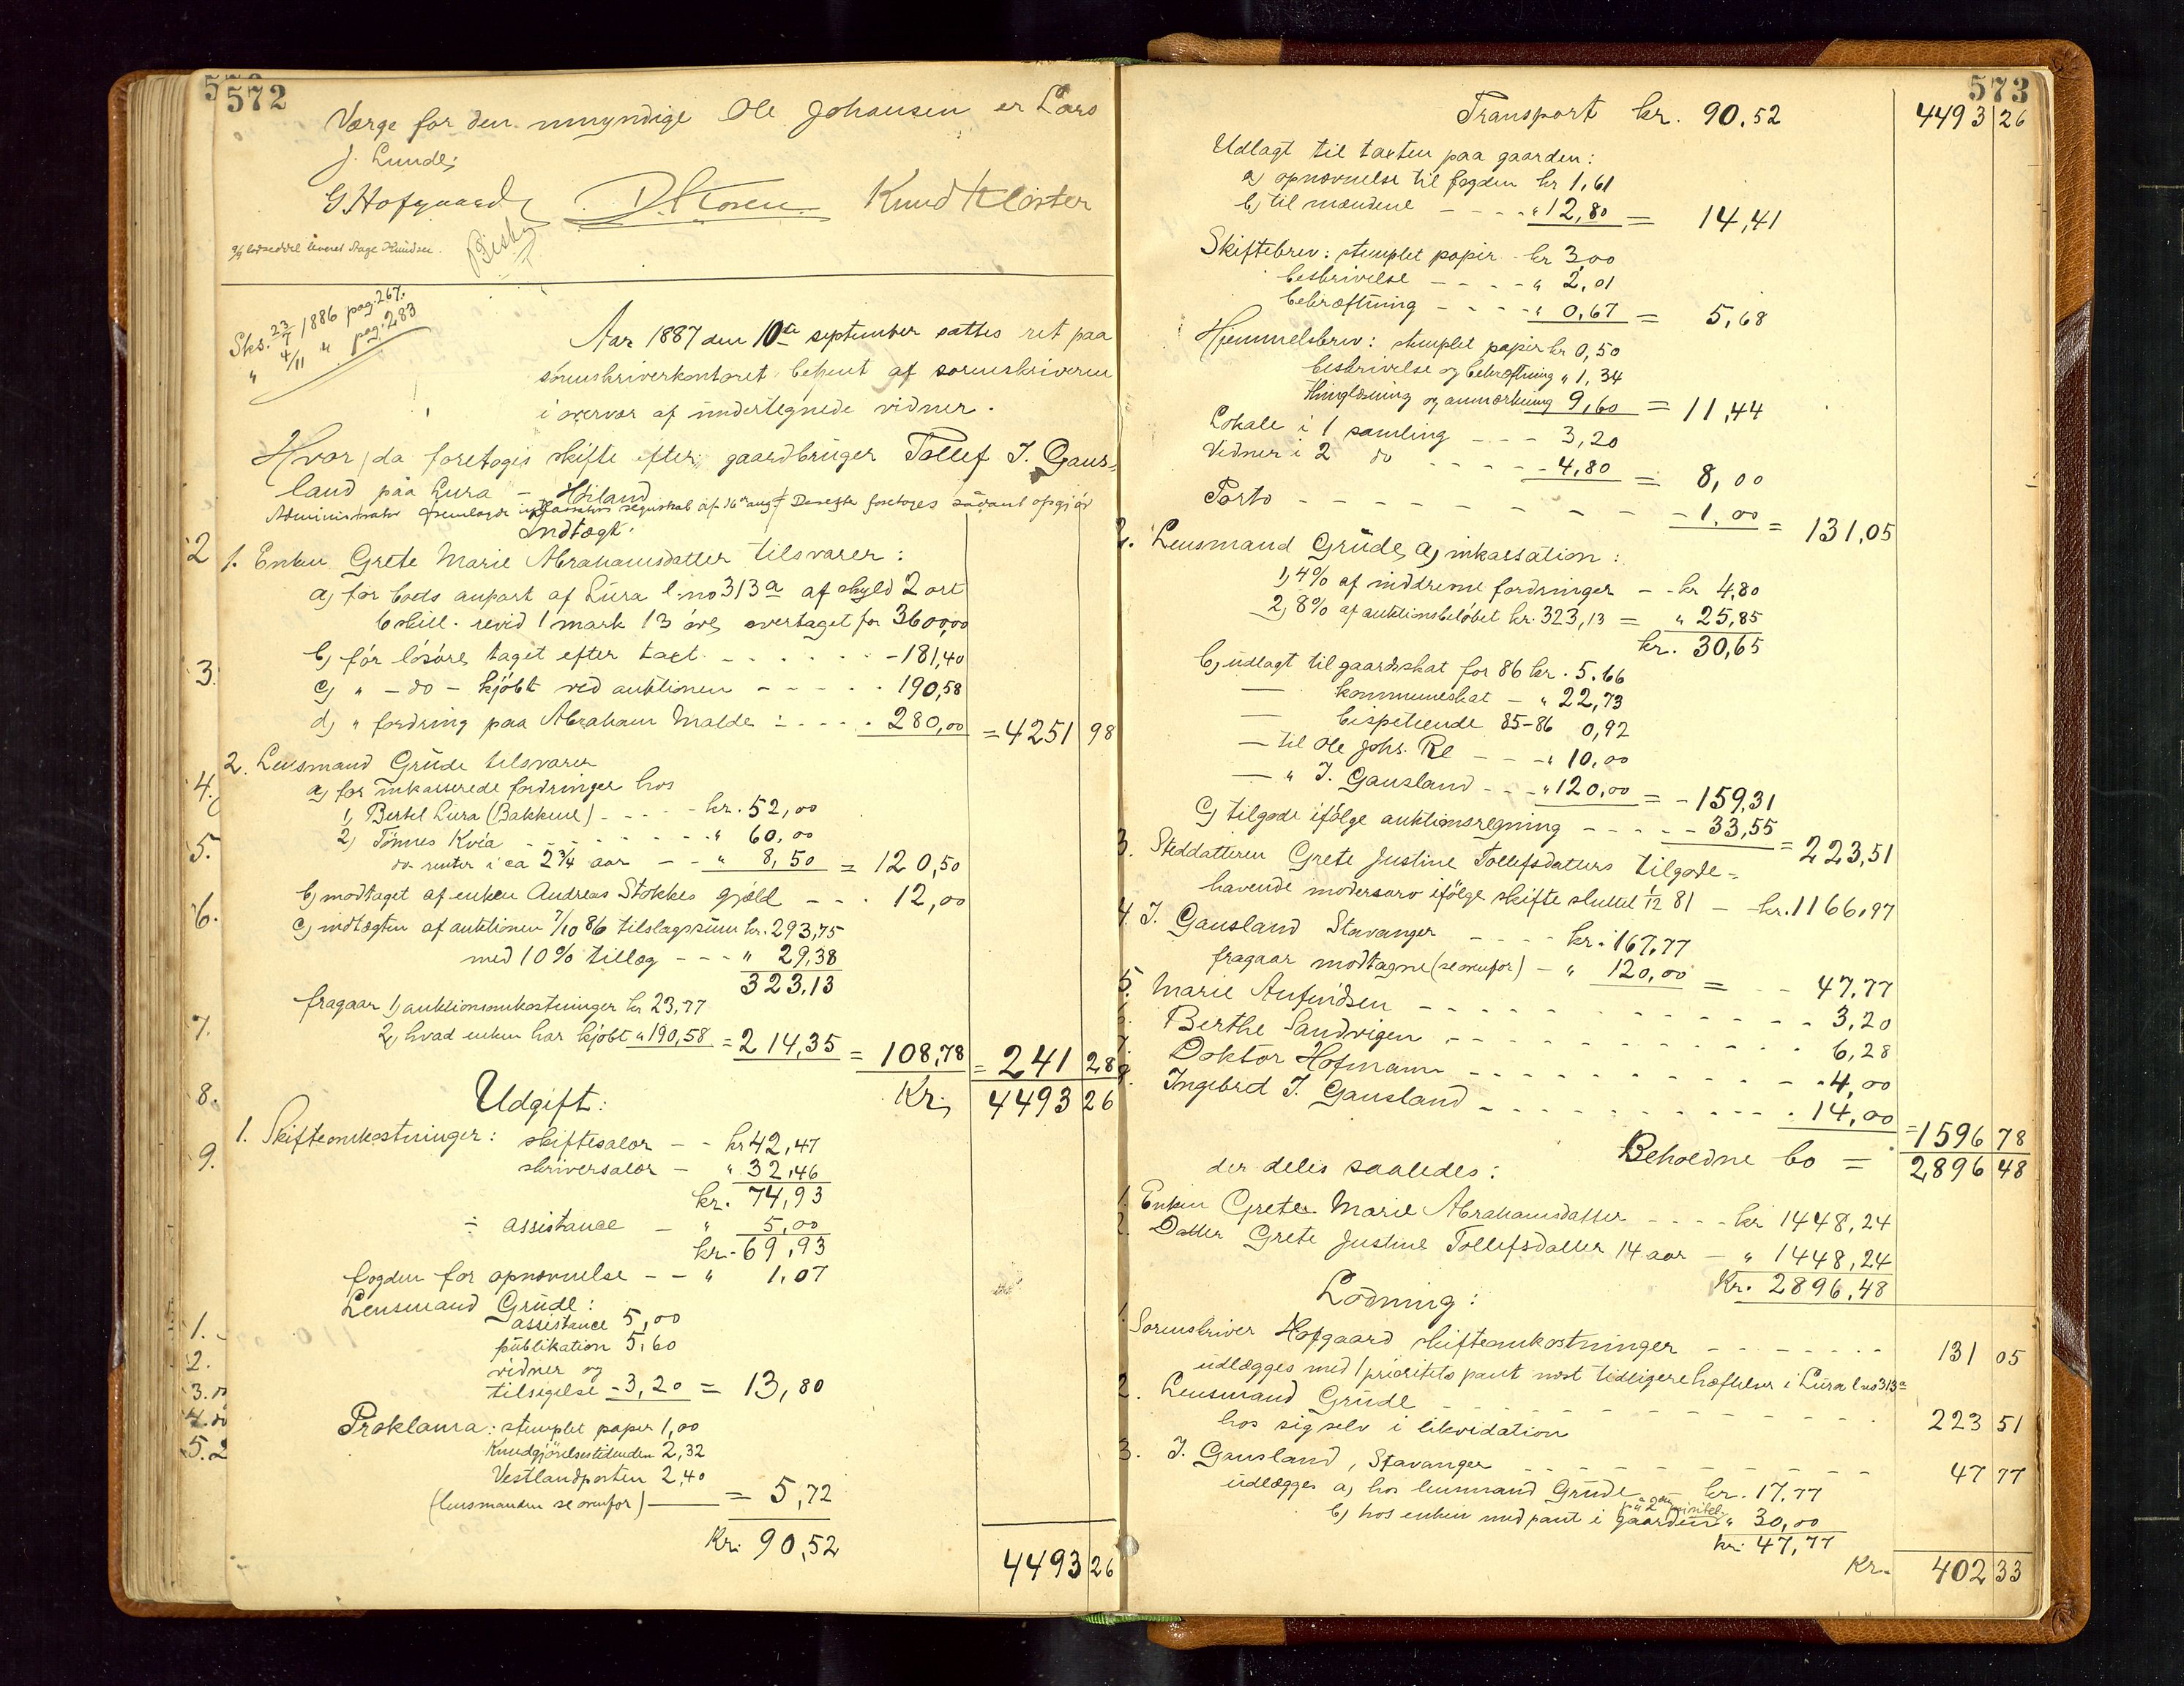 572
Værge for den umyndige Ole Johansen er Lars
J. Lunde;
G. Hofgaard Knud Kloster
lodseddel leveret Aage Knudsen.
Sks. 23/7 1886 pag. 267.
" 4/11 " pag. 283
Aar 1887 den 10de september sattes ret paa
sorenskriverkontoret betjent af sorenskriveren
i overvær af undertegnede vidner.
Hvor da foretoges skifte efter gaardbruger Tollef T. Gaus-
land paa Lura - Høiland
Administrator fremlagde inkassations regnskab af 16de aug. Derefter foretoges sådant opgjør
Indtægt.
1. Enken Grete Marie Abrahamsdatter tilsvarer:
a, for boets anpart af Lura l. no 313a af skyld 2 ort
6 skill. revid 1 mark 13 øre, overtaget for 3600,00
b, for løsøre, taget efter taxt - 181,40
c, " - do - kjøbt ved auktionen - 190,58
d, " fordring paa Abraham Malde - 280,00 = 4251 98
2. Lensmand Grude tilsvarer
a, for inkasserede fordringer hos
1, Bertel Lura (Bakkene) - kr. 52,00
2, Tønnes Kvia - " 60,00
do renter i ca 2 3/4 aar - " 8,50 = 120,50
b, modtaget af enken Andreas Stokkes gjæld - 12,00
c, indtægten af auktionen 7/10 86 tilslagssum kr. 293,75
med 10% tillæg - " 29,38
323,13
fragaar 1, auktionsomkostninger kr 23,77
2, hvad enken har kjøbt " 190,58 = 214,35 = 108,78 = 241 28
Kr. 4493 26
Udgift:
1. Skifteomkostninger: skiftesalær - kr 42,47
skriversalær - " 32,46
kr. 74,93
÷ assistance - " 5,00
kr. 69,93
fogden for opnævnelse - " 1,07
Lensmand Grude:
assistance 5,00
publikation 5,60
vidner og
tilsigelse - 3,20 = 13,80
Proklama: stemplet papir 1,00
Kundgjørelsestidenden 2,32
Vestlandposten 2,40
(lensmanden se ovenfor) = 5,72
Kr. 90,52
4493 26
573
Transport kr. 90.52 4493 26
Udlagt til taxten paa gaarden:
a, opnævnelse til fogden kr 1,61
b, til mændene - " 12,80 = 14,41
Skiftebrev: stemplet papir - kr 3,00
beskrivelse - " 2,01
bekræftning - " 0,67 = 5,68
Hjemmelsbrev: stemplet papir kr 0,50
beskrivelse og bekræftning " 1,34
thinglæsning og anmærkning 9,60 = 11,44
Lokale i 1 samling - 3,20
Vidner i 2 do - 4,80 = 8,00
Porto - 1,00 = 131,05
2. Lensmand Grude, a, inkassation:
1, 4% af inddrevne fordringer - kr 4,80
2, 8% af auktionsbeløbet kr. 323,13 = " 25,85
kr. 30,65
b, udlagt til gaardskat for 86 kr. 5.66
— kommuneskat - " 22,73
— bispetiende 85-86 0,92
— til Ole Johs. Re - " 10,00
— " T. Gausland - " 120,00 = - 159,31
c, tilgode ifølge auktionsregning - 33,55 = 223,51
3. Steddatteren Grete Justine Tollefsdatters tilgode-
havende mødrearv ifølge skifte sluttet 1/12 81 - kr. 1166,97
4. T. Gausland Stavanger - kr. 167,77
fragaar modtagne (se ovenfor) - " 120,00 = - 47,77
5. Marie Anfindsen - 3,20
6. Berthe Sandvigen - 6,28
7. Doktor Hofmann - 4,00
8. Ingebret T. Gausland - 14,00 = 1596 78
Beholdne bo = 2896 48
der deles saaledes:
1. Enken Grete Marie Abrahamsdatter - kr 1448,24
2. Datter Grete Justine Tollefsdatter 14 aar - " 1448,24
Kr. 2896,48
Lodning:
1. Sorenskriver Hofgaard skifteomkostninger - 131 05
udlægges med 1 prioritets pant næst tidligere hæftelser i Lura l no 313a
2. Lensmand Grude - 223 51
hos sig selv i likvidation
3. T. Gausland, Stavanger - 47 77
udlægges a, hos lensmand Grude - kr. 17,77
b, hos enken med pant i gaarden " 30,00
kr. 47,77
Kr. 402 33